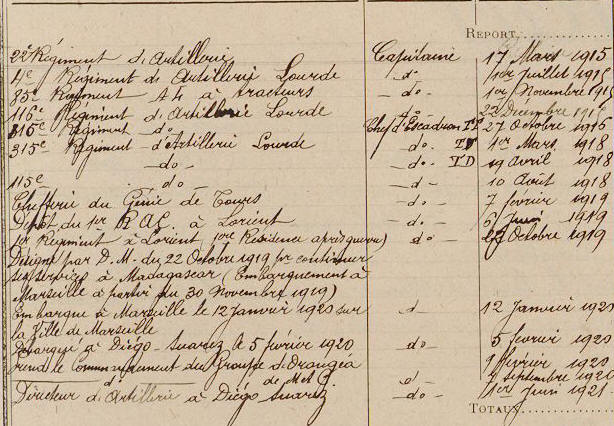 REPORT
22e Régiment d'Artillerie Capitaine 17 Mars 1915
4e Régiment d'Artillerie Lourde -do- 1er Juillet 1915
85e Régiment A4 à tracteurs -do- 1er Novembre 191
110e Régiment d'Artillerie Lourde -do- 22 Décembre 191
316e Régiment -do- Chef d'Escadron TT 27 Octobre 1916
315e Régiment d'Artillerie Lourde -do- TT 1er Mars 1918
-do- -do- TD 19 avril 1918
115e -do- -do- 10 Août 1918
Chefferie du Génie de Tours -do- 7 février 1919
Dépôt du 1er R.A.C. à Lorient -do- 6 Juin 1919
1er Régiment à Lorient (1ere Résidence après guerre) do - Octobre 1919
Désigné par D.M. du 22 Octobre 1919 pr continuer
ses services à Madagascar (Embarquement à
Marseille à partir du 30 Novembre 1919)
Embarqué à Marseille le 12 Janvier 1920 sur -d- 12 Janvier 1920
la Ville de Marseille
Débarqué à Diégo-Suarez le 5 février 1920 do- 5 février 1920
Prend le Commandement du Groupe d'Orangéa -d- 9 février 1920
d° de Met 7 Septembre 1920
Directeur d'Artillerie à Diégo Suarez -do- 1er Juin 1921
TOTAUX